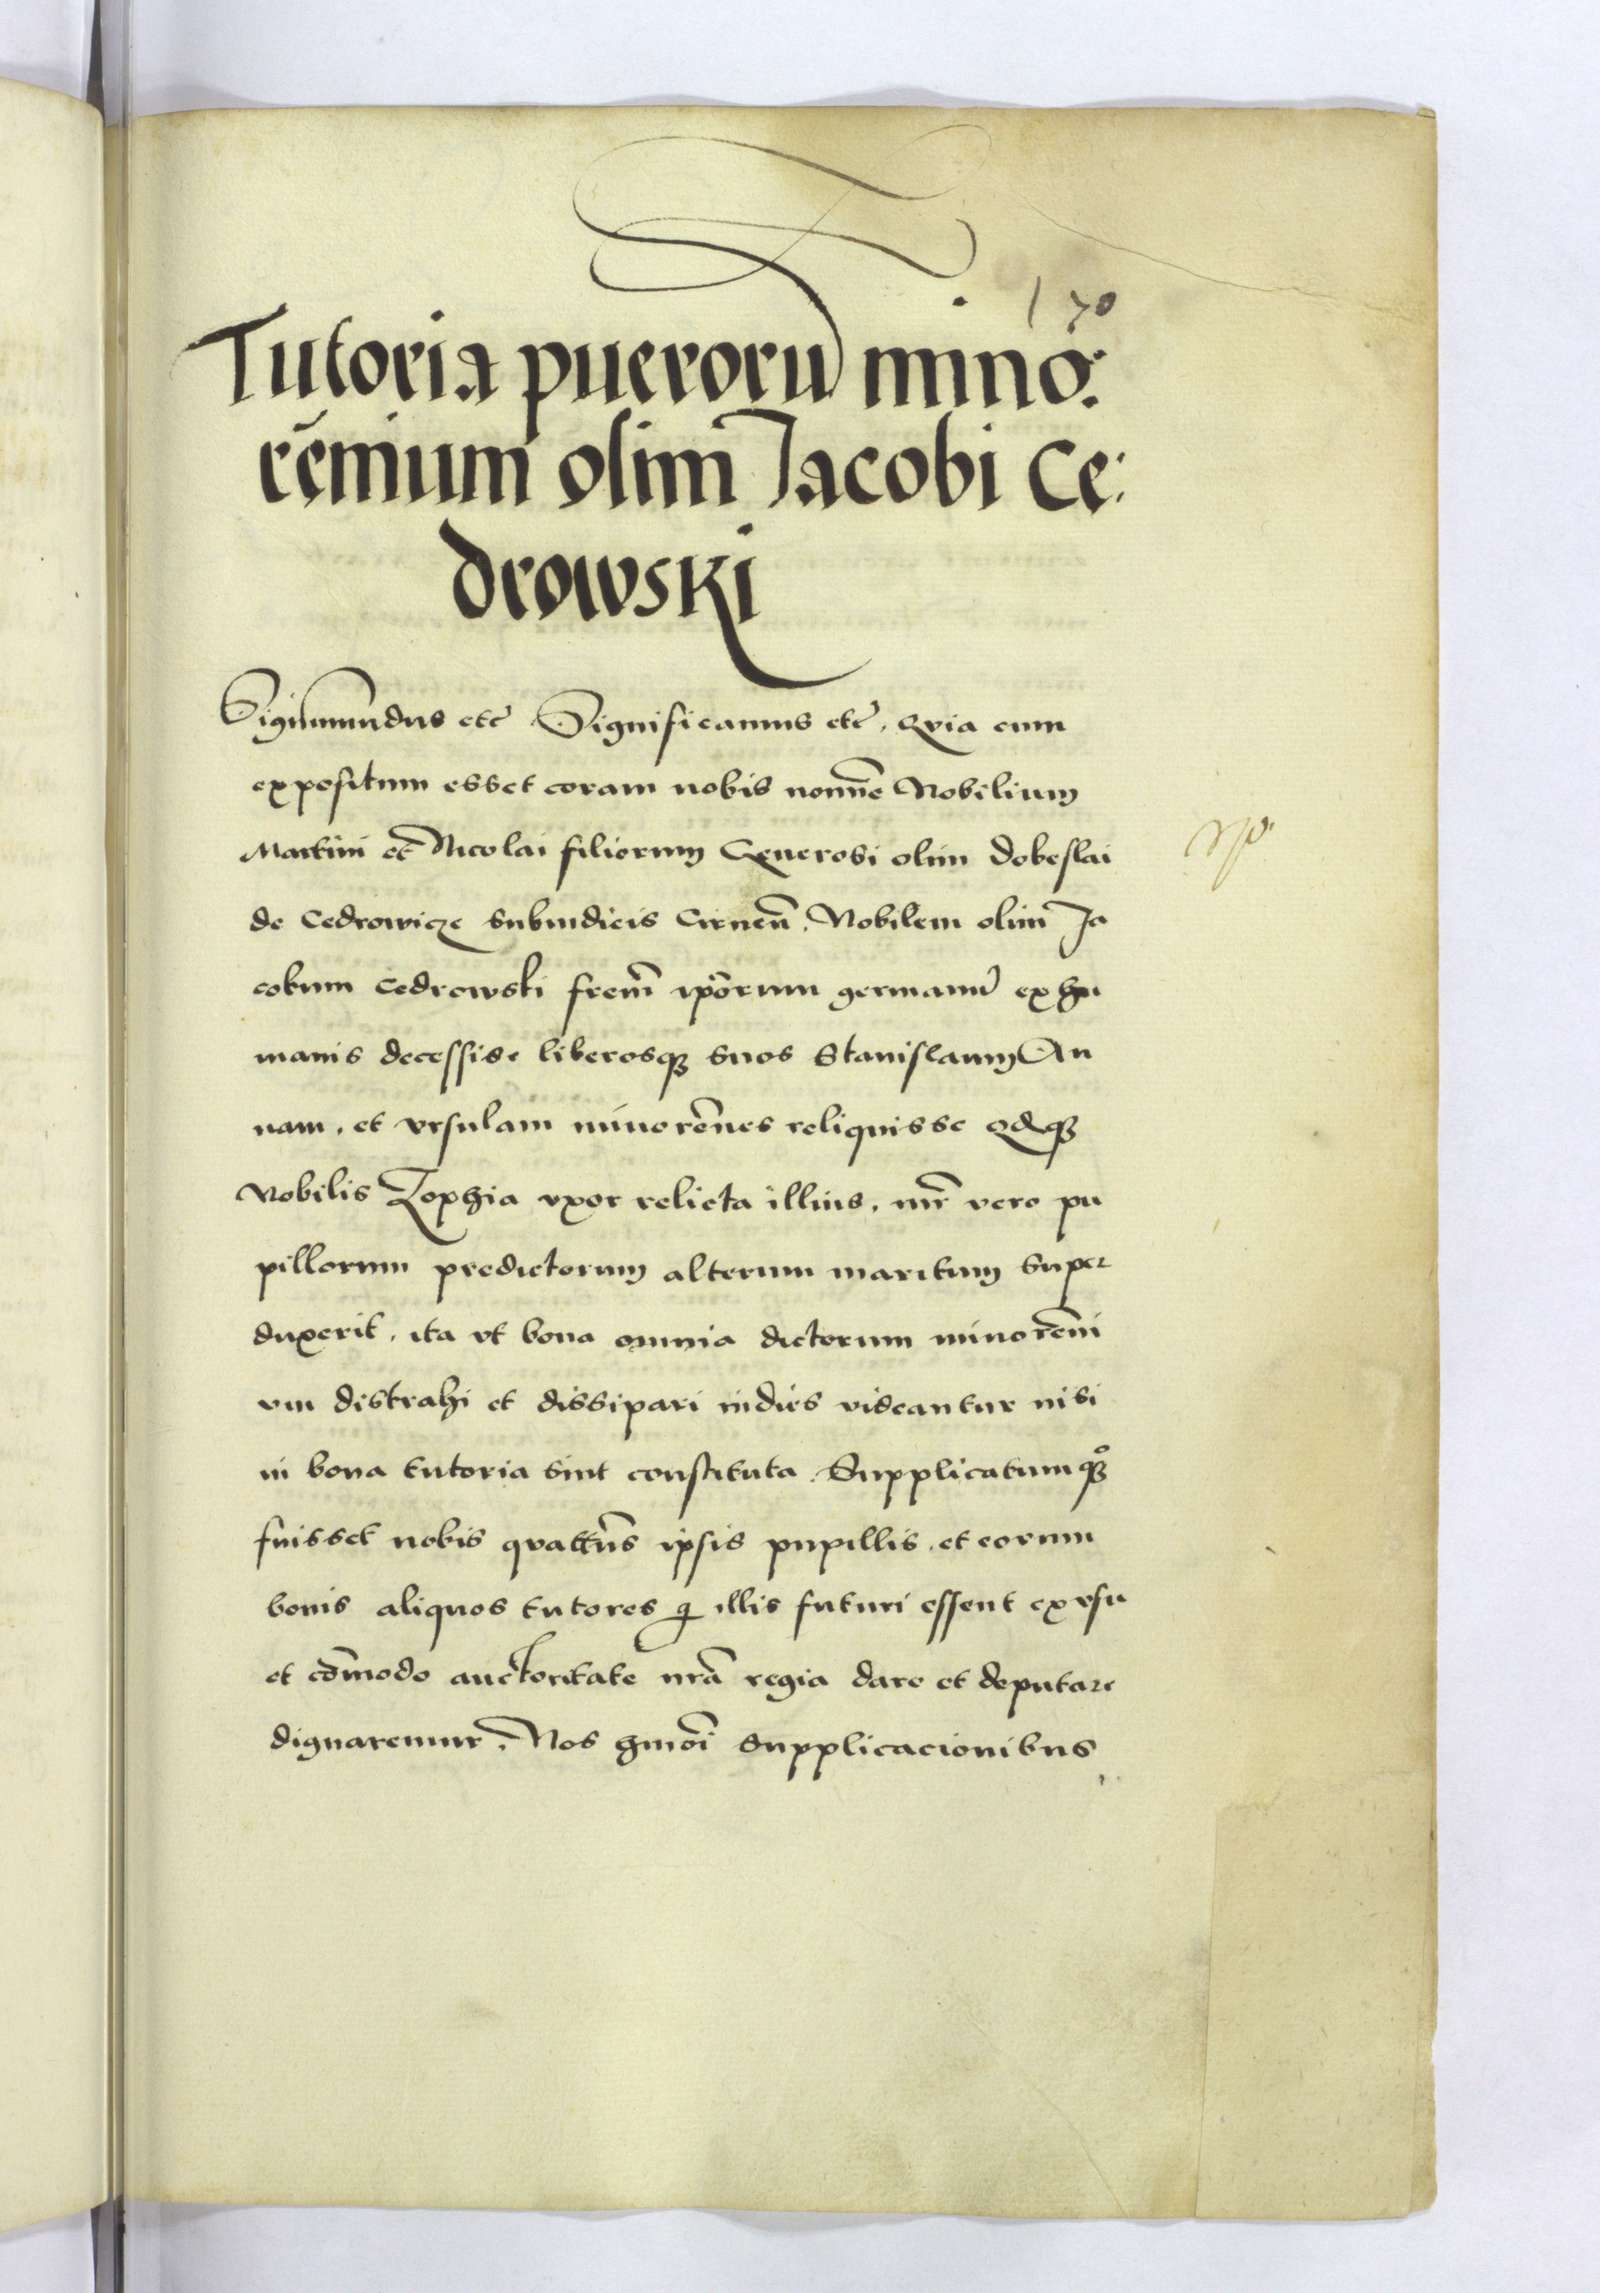 170
Tutoria pueroru mino:
rēnium olim Jacobi Ce:
drowski
Sigismundus etc̃ Significamus etc̃. Qvia cum
expositum esset coram nobis nomīe Nobilium
Martini et Nicolai filiorum Generosi olim dobeslai
de Cedrowicze subiudicis Cirneñ. Nobilem olim Ja
cobum Cedrowski frem̃ ip̃orum germanũ ex hu
manis decessise liberosq3 suos Stanislaum An
nam. et vrsulam minorēnes reliquisse qdq3
Nobilis Zophia vxor relicta illius. mr̃ vero pu
pillorum predictorum alterum maritum super
duxerit. ita vt bona omnia dictorum minorēni
um distrahi et dissipari indies videantur nisi
in bona tutoria sint constituta. Supplicatumq3
fuisset nobis qvattūs ipsis pupillis. et eorum
bonis aliquos tutores q illis futuri essent ex vsu
et cōmodo auctoritate nrã regia dare et deputare
dignaremur. Nos hmōi supplicacionibus